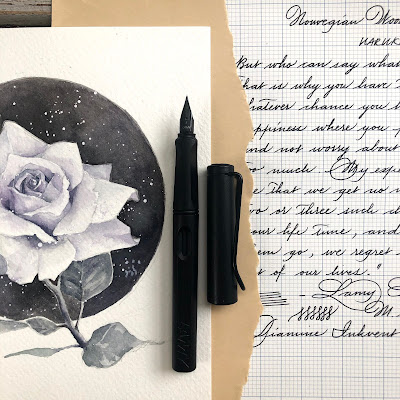 Norwegian Woo
HARUK
But who can say what
hat is why you have
hatever chance you
ppiness where you
and not worry about
oo much. My expe
e that we get no
wo or three such
our life time, and
em go, we regret
t of our lives."
- Lamy
M.
Diamine Inkvent
LAMY